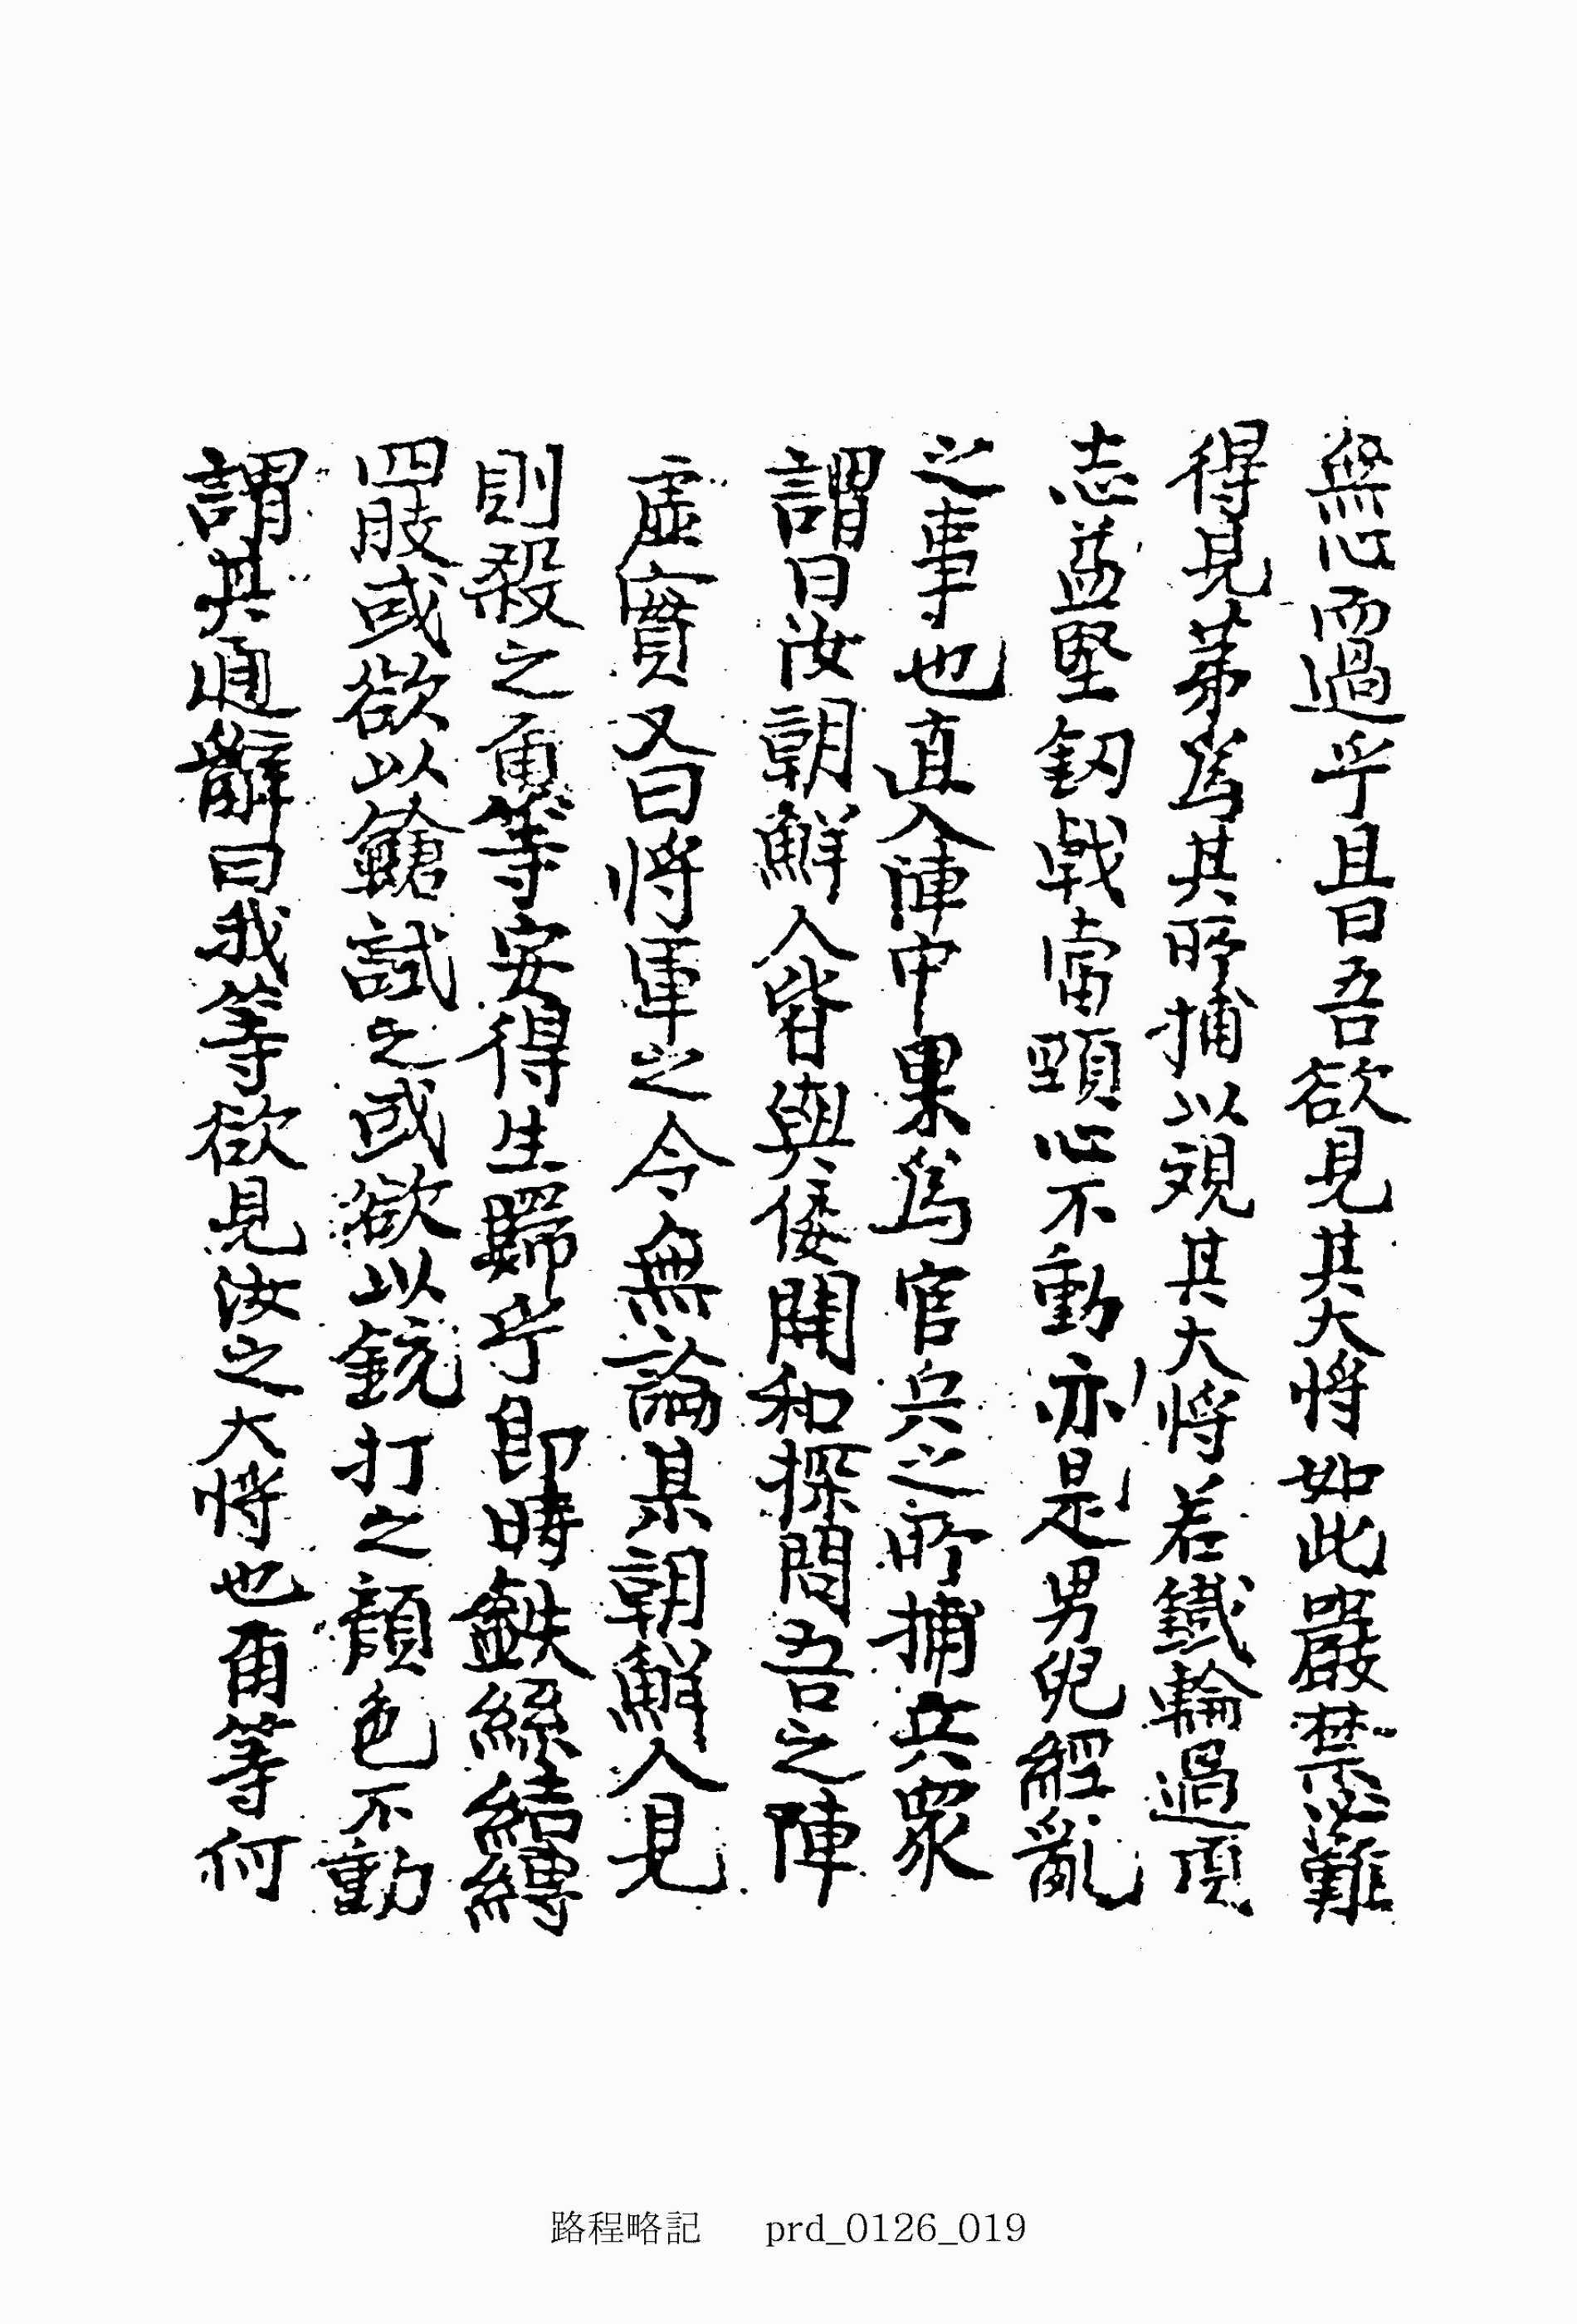 無心而過乎且曰吾欲見其大將如此嚴禁必難
得見第爲其所捕以覘其大將若鐵輪過頂
志益堅釰戟當頸心不動亦是男兒經亂
之事也直入陣中果爲官兵之所捕兵衆
謂曰汝朝鮮人皆與倭開和探問吾之陣
虛實又曰將軍之令無論某朝鮮人見
則殺之爾等安得生歸乎即時鐵絲結縛
四肢或欲以鎗試之或欲以銃打之顔色不動
謂其通辭曰我等欲見汝之大將也爾等何
路程略記 prd_0126_019